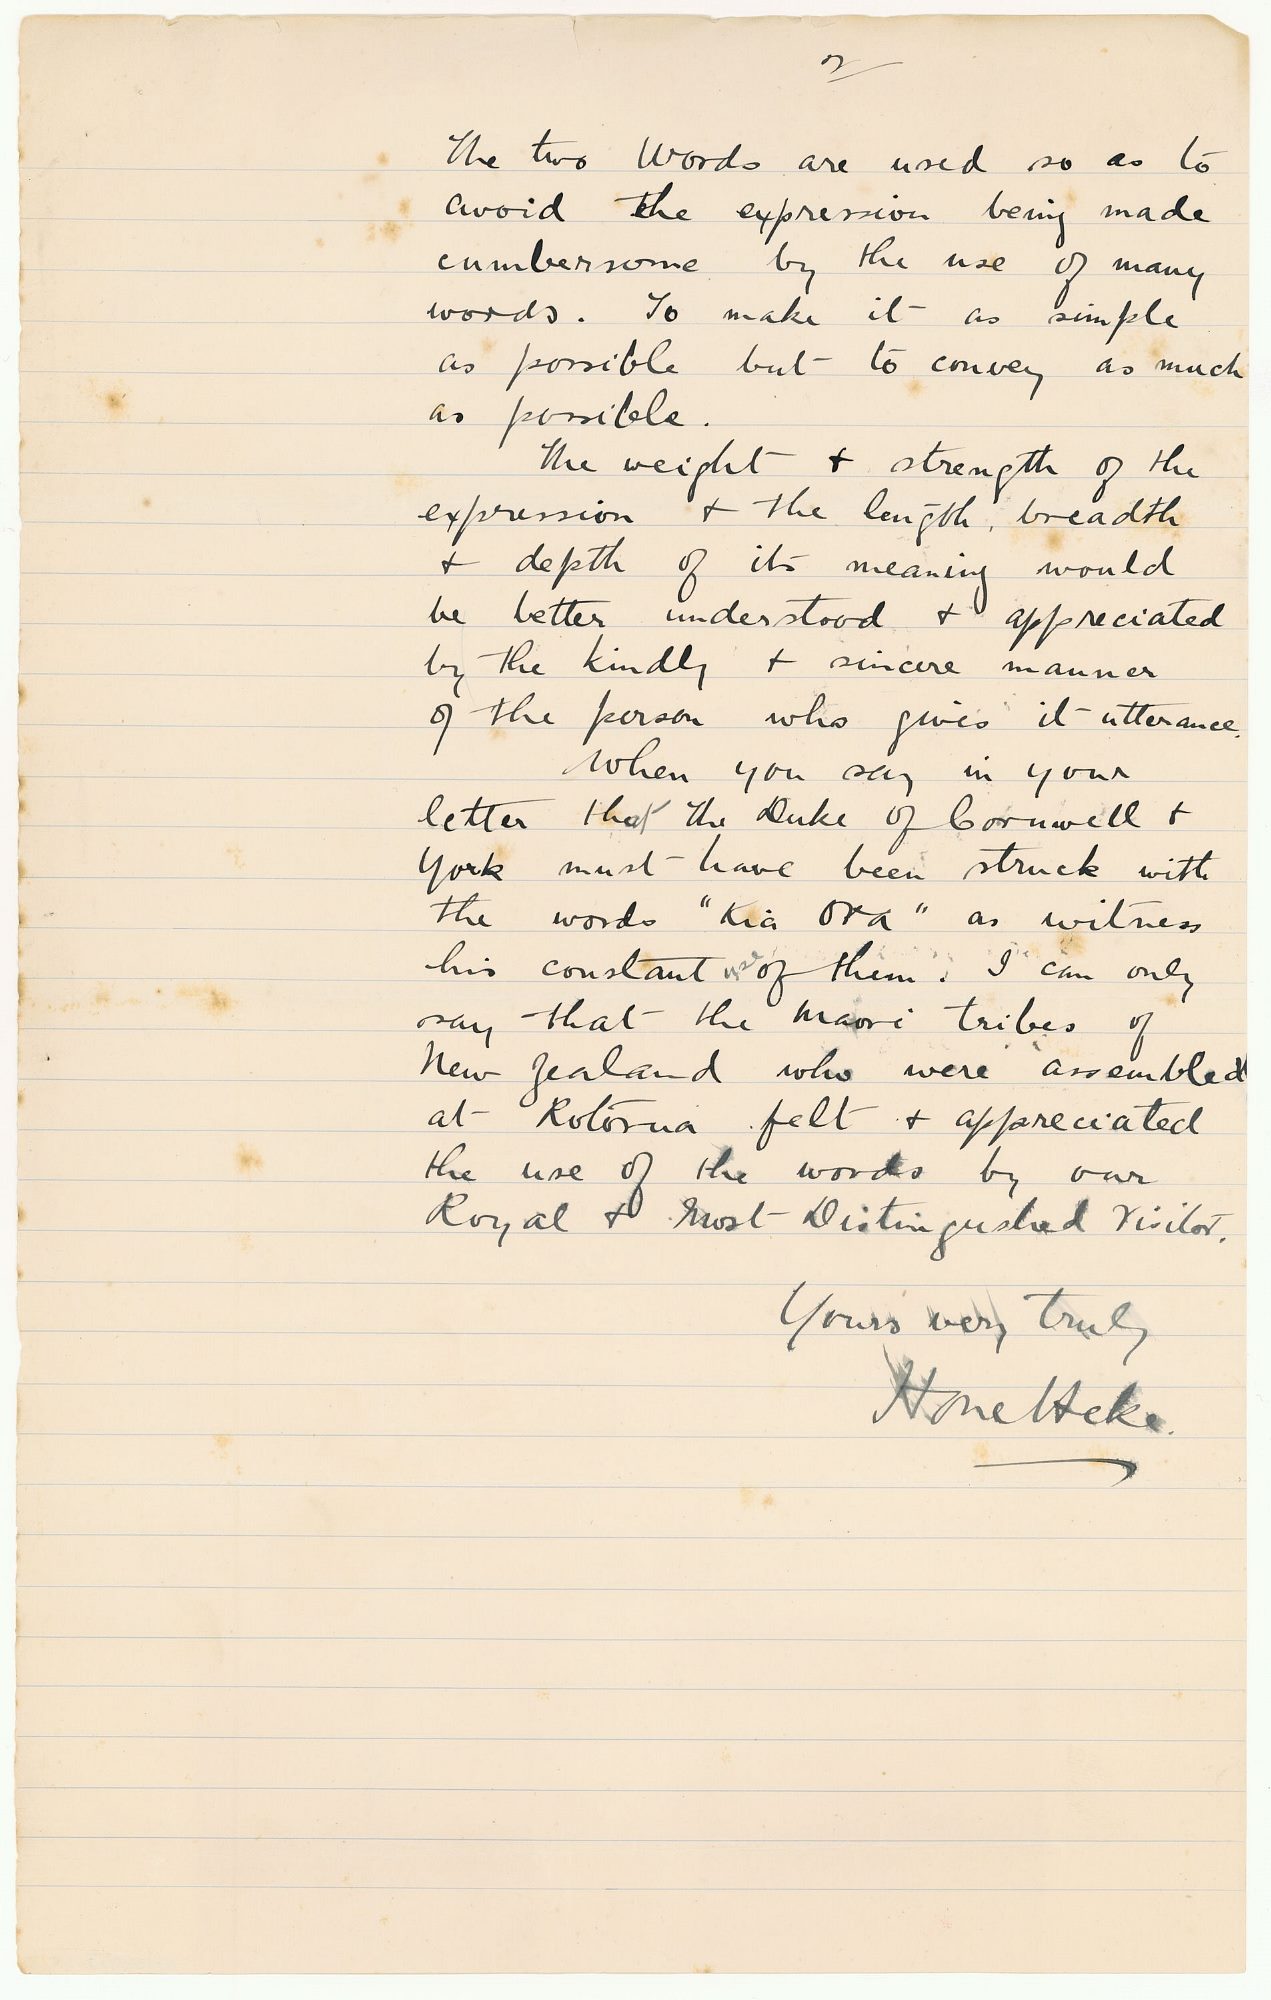 2
The two Words are used so as to
avoid the expression being made
cumbersome by the use of many
words. To make it as simple
as possible but to convey as much
as possible.
The weight & strength of the
expression & the length, breadth
& depth of its meaning would
be better understood & appreciated
by the kindly & sincere manner
of the person who gives it utterance.
When you say in your
letter that the Duke of Cornwell &
York must have been struck with
the words "Kia Ora" as witness
his constant use of them. I can only
say that the Maori tribes of
New Zealand who were assembled
at Rotorua felt & appreciated
the use of the words by our
Royal & Most Distinguished Visitor.
Yours very truly
Hone Heke.